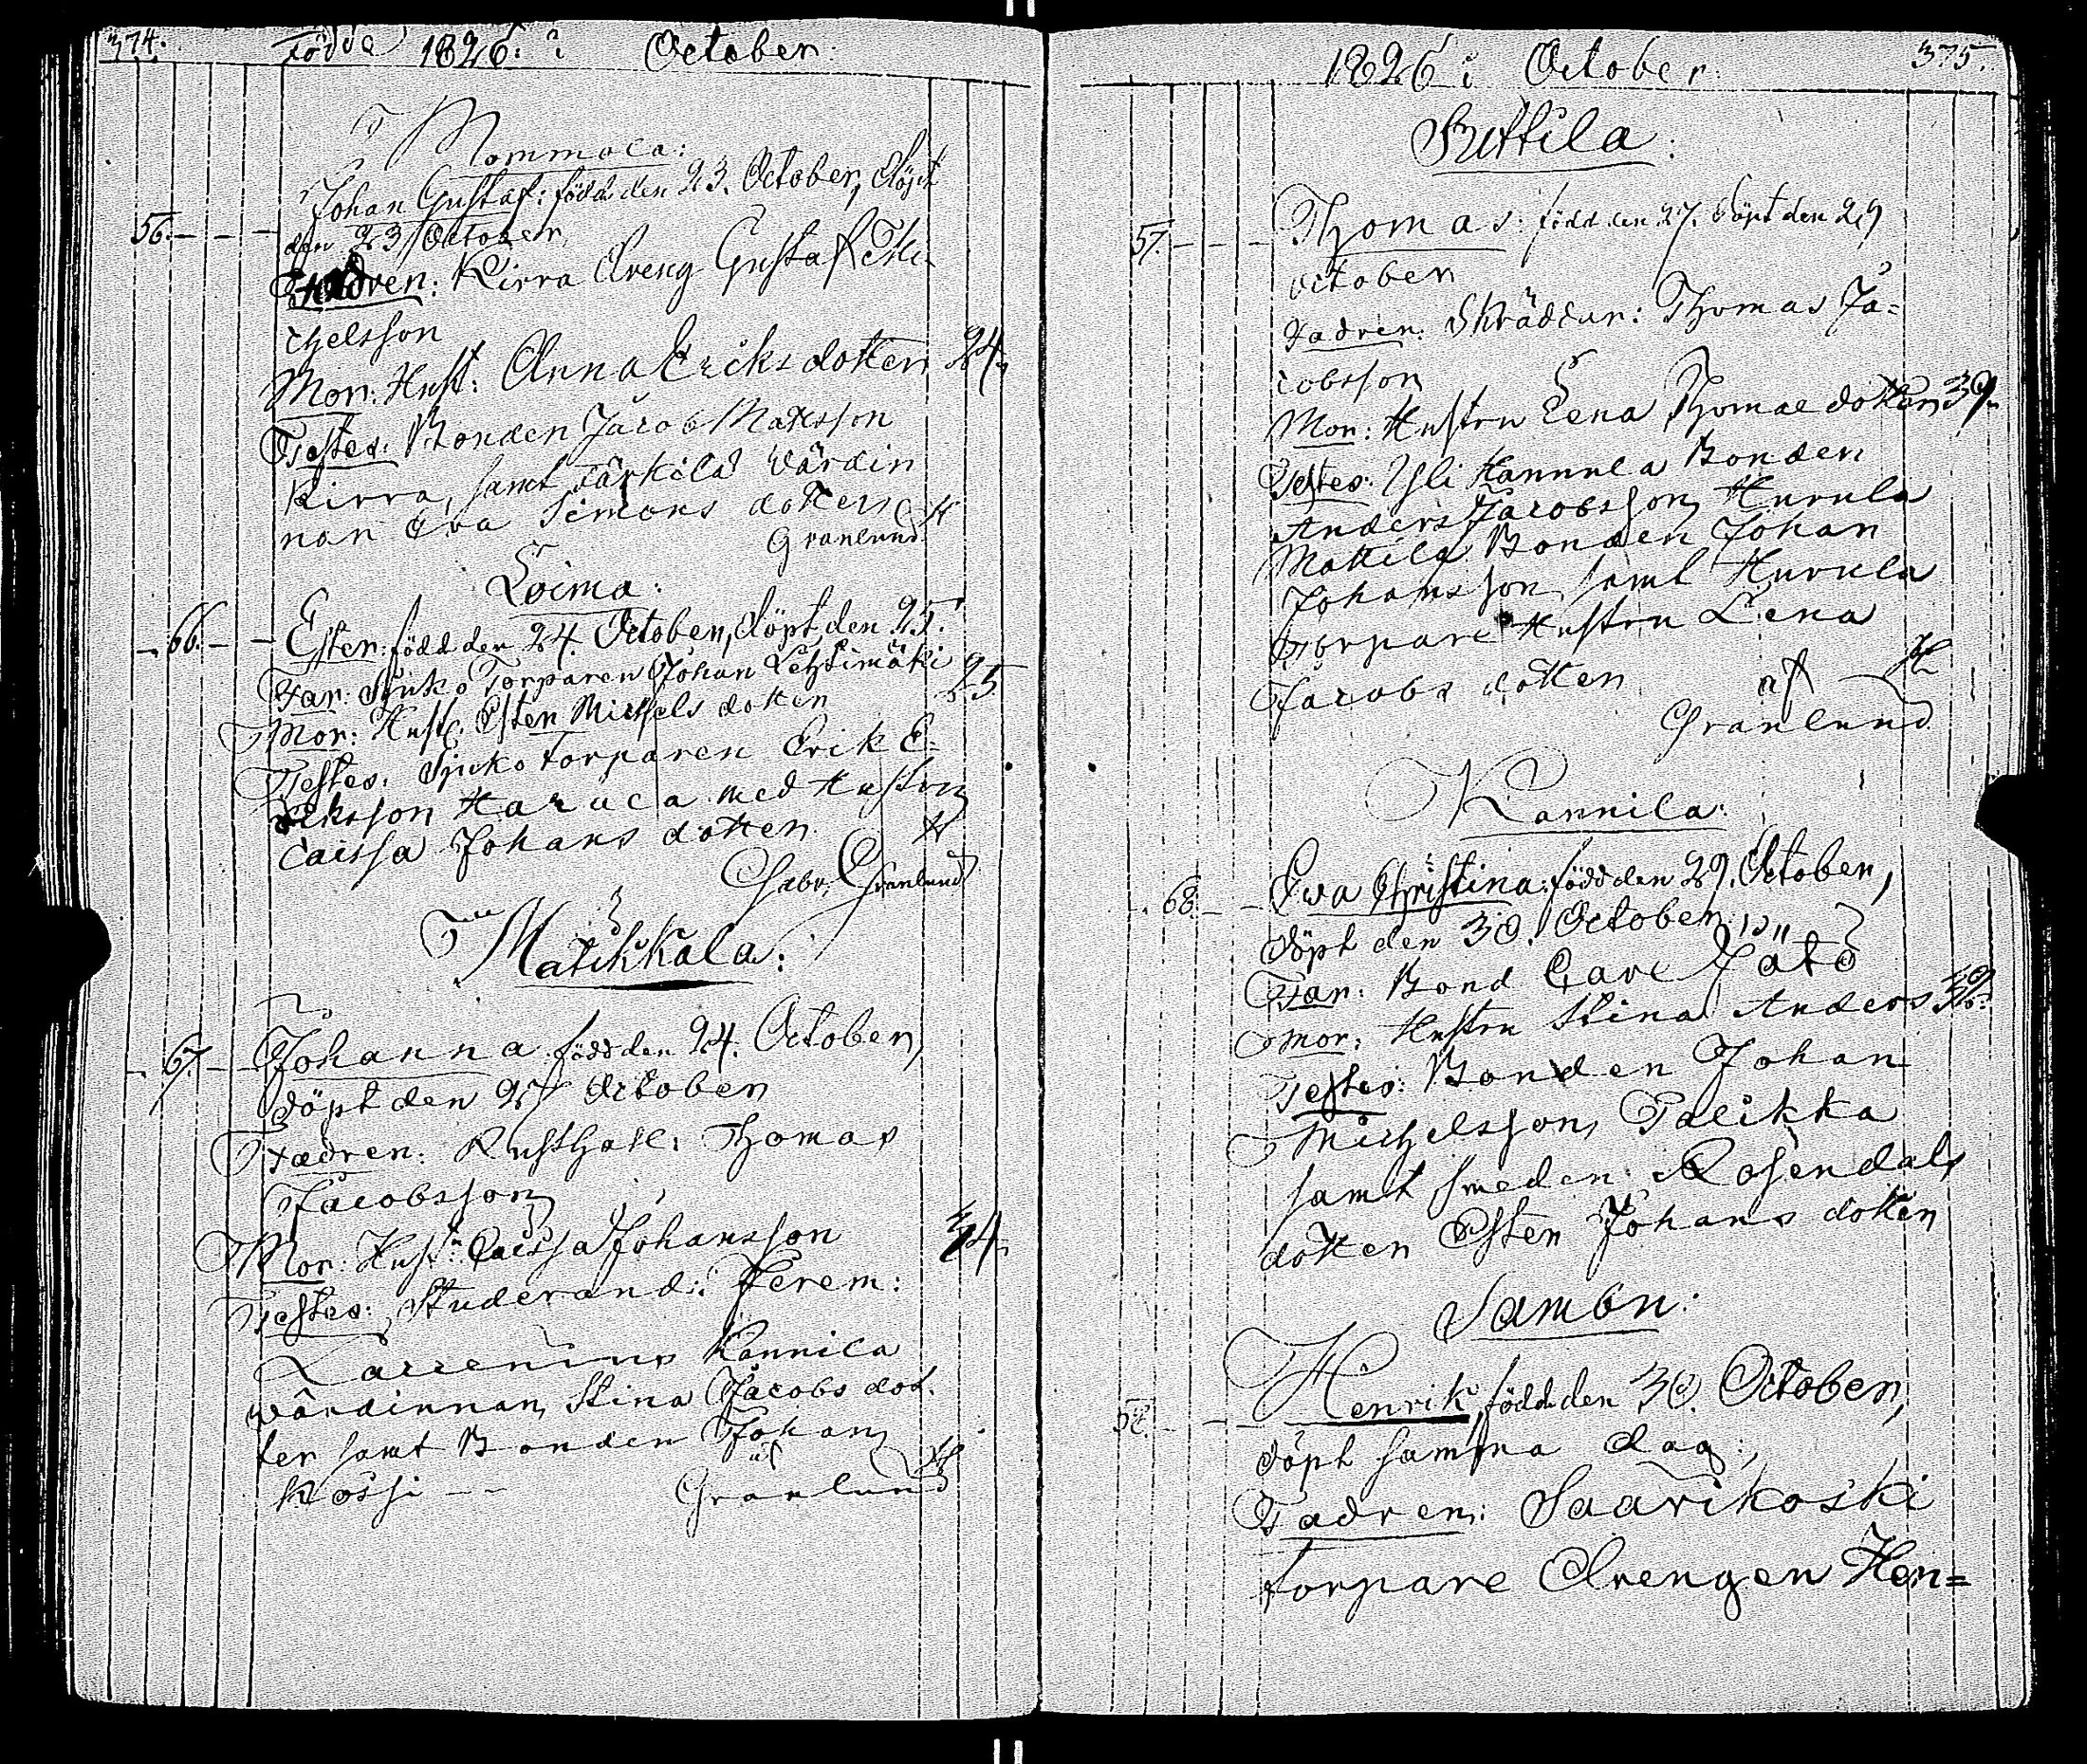 374.
Födde 1826. i October.
Mommola:
Johan Gustaf: född den 23. October, döpt
56.
den 23 October
Fadren: Kirra Dreng Gustaf Mi-
chelsson
Mor: Hust: Anna Ericks dotter 24.
Testes: Bonden Jacob Mattsson
Kirra, samt Tärkilä Värdin
nan Eva Simons dotter
Granlund
Loima:
66. Ester: född den 24. October, döpt den 25.
Far: Sjuko Torparen Johan Lehtimäki
Mor: Hust: Ester Michels dotter 25
Testes: Sjuko torparen Erik E-
riksson med Hustru
Caissa Johans dotter.
Gabr. Granlund
Matikkala:
67. Johanna född den 24. October,
döpt den 27 October
Fadren: Rusthåll: Thomas
Jacobsson
Mor: Hust: Caissa Johansson 34.
Testes: Studerand: Jerem:
Kannila
wärdinnan, Stina Jacobs dot.
ter samt Bonden Johan
Kossi - - af Granlund
1826 i October
375.
Suttila:
57. Thomas: född den 27. döpt den 29
October
Fadren: Skräddar: Thomas Ja=
cobsson
Mor: Hustru Lena Thomae dotter 39.
Testes: Yli Hannula Bonden
Anders Jacobsson, Huvula
Mattila Bonden Johan
Johansson, samt Huvula
Torpare Hustru Lena
Jacobs dotter af
Granlund
Kannila:
68. Eva Christina: född den 29. October,
döpt den 30. October
Far: Bond
Mor: Hustru Stina Anders
Testes: Bonden Johan
Michelsson, Palikka
samt smeden Rosendals
dotter Ester Johans dotter
Sambu:
Henrik, född den 30. October,
döpt samma dag:
Fadren: Saarikoski
torpare Drengen Hen=